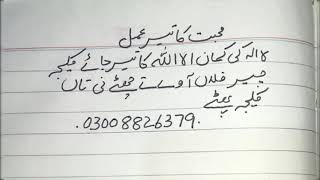 محبت کا تیر عمل
لا الہ کی کمان الا اللہ کا تیر جائے کلیجہ
چیر فلاں آوے تے چھٹے نی تاں
کلیجہ پھٹے
03008826379.